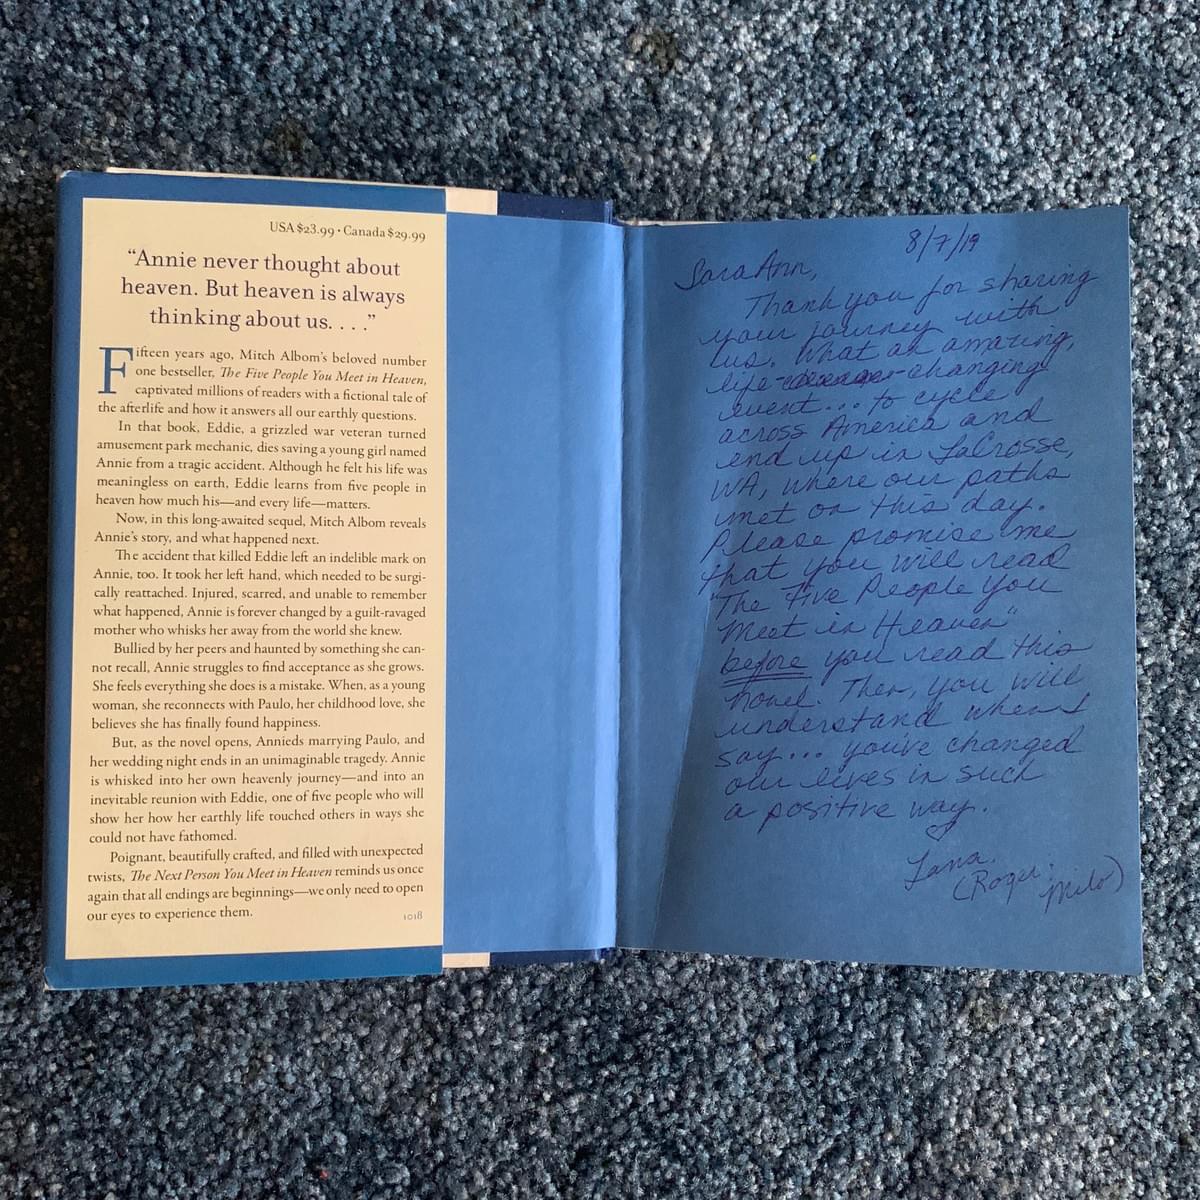 USA $23.99 • Canada $29.99
“Annie never thought about
heaven. But heaven is always
thinking about us. . . .”
Fifteen years ago, Mitch Albom’s beloved number
one bestseller, The Five People You Meet in Heaven,
captivated millions of readers with a fictional tale of
the afterlife and how it answers all our earthly questions.
In that book, Eddie, a grizzled war veteran turned
amusement park mechanic, dies saving a young girl named
Annie from a tragic accident. Although he felt his life was
meaningless on earth, Eddie learns from five people in
heaven how much his—and every life—matters.
Now, in this long-awaited sequel, Mitch Albom reveals
Annie’s story, and what happened next.
The accident that killed Eddie left an indelible mark on
Annie, too. It took her left hand, which needed to be surgi-
cally reattached. Injured, scarred, and unable to remember
what happened, Annie is forever changed by a guilt-ravaged
mother who whisks her away from the world she knew.
Bullied by her peers and haunted by something she can-
not recall, Annie struggles to find acceptance as she grows.
She feels everything she does is a mistake. When, as a young
woman, she reconnects with Paulo, her childhood love, she
believes she has finally found happiness.
But, as the novel opens, Annieds marrying Paulo, and
her wedding night ends in an unimaginable tragedy. Annie
is whisked into her own heavenly journey—and into an
inevitable reunion with Eddie, one of five people who will
show her how her earthly life touched others in ways she
could not have fathomed.
Poignant, beautifully crafted, and filled with unexpected
twists, The Next Person You Meet in Heaven reminds us once
again that all endings are beginnings—we only need to open
our eyes to experience them.
1018
8/7/19
Sara Ann,
Thank you for sharing
your journey with
us. What an amazing,
life-changing
event... to cycle
across America and
end up in LaCrosse,
WA, where our paths
met on this day.
Please promise me
that you will read
"The Five People You
Meet in Heaven"
before you read this
novel. Then, you will
understand when I
say... you've changed
our lives in such
a positive way.
♡
Lana
(Roger Milo)